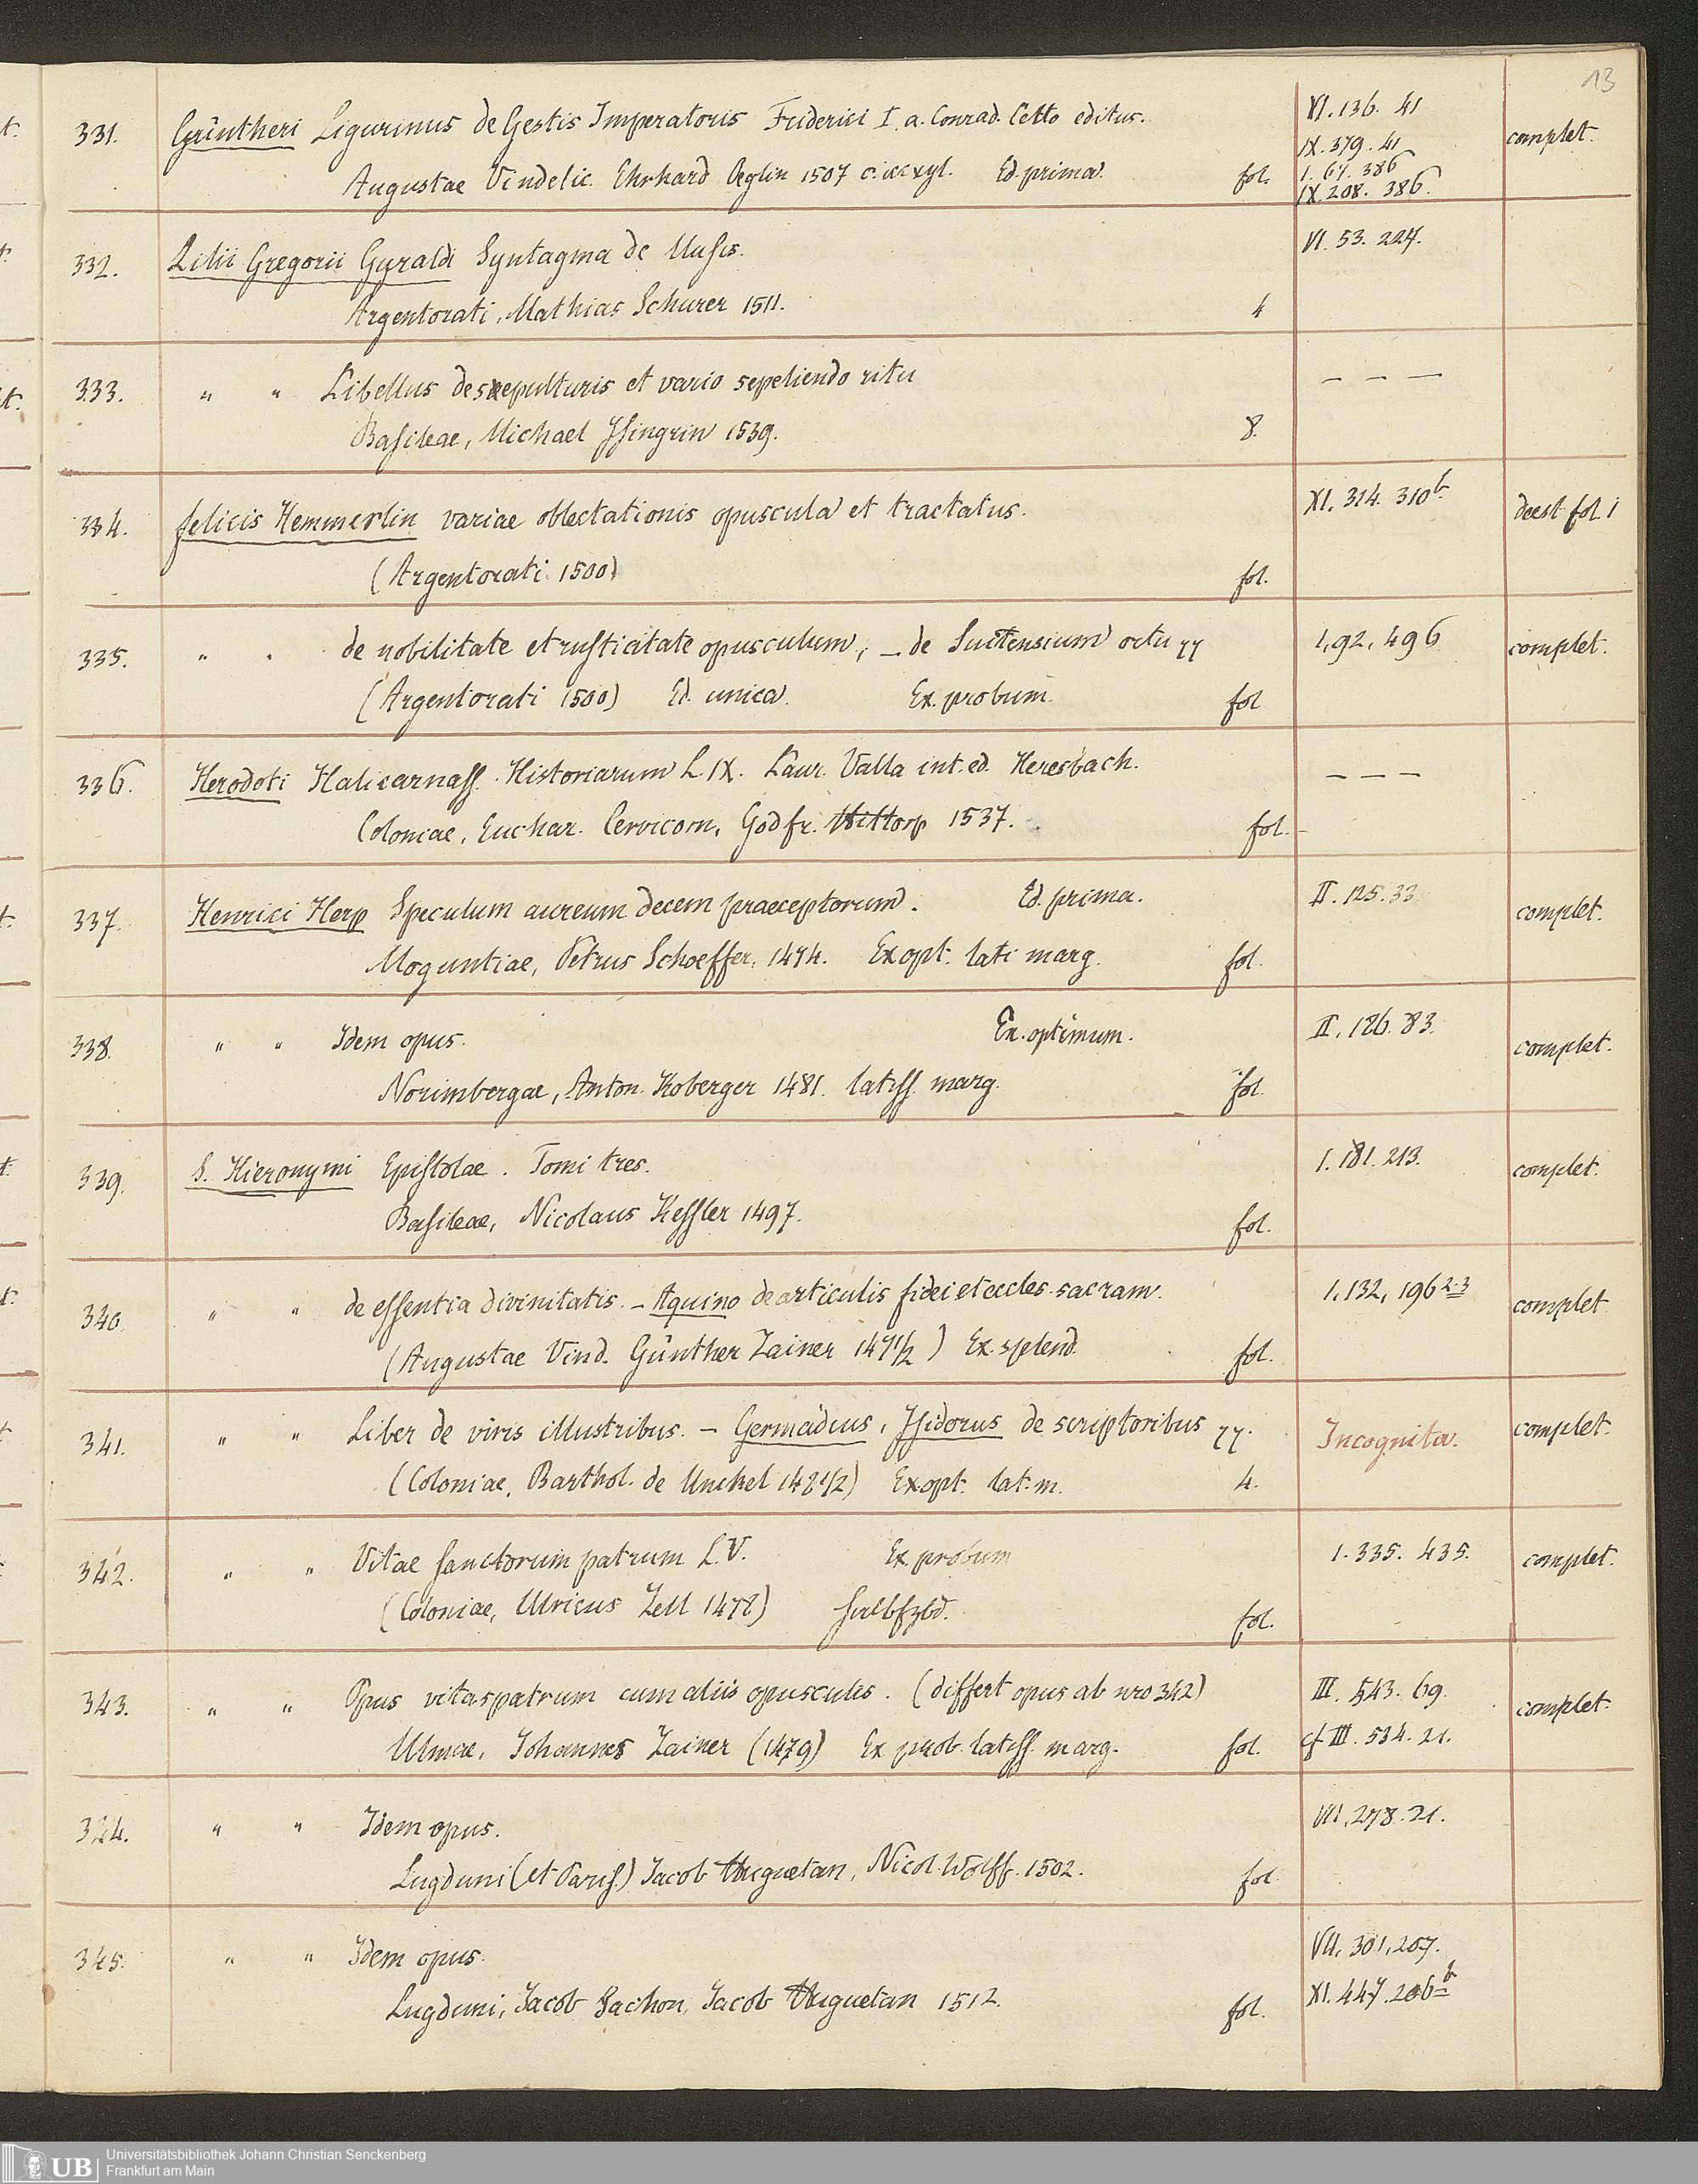 13
331. Güntheri Ligurinus de Gestis Imperatoris Friderici I. a. Conrad. Celto editus. VI. 136. 41 complet.
IX. 379. 41
Augustae Vindelic. Ehrhard Oeglin 1507 xyl. Ed. prima. fol. 1. 67. 386
IX. 208. 386.
332. Lilii Gregorii Gyraldi Syntagma de Musis. VI. 53. 227.
Argentorati, Mathias Schurer 1511. 4
333. " " Libellus de sepulturis et vario sepeliendo ritu — — —
Basileae, Michael Isingrin 1539. 8.
334. Felicis Hemmerlin variae oblectationis opuscula et tractatus. XI. 314. 310b. deest fol. 1
(Argentorati 1500) fol.
335. " " de nobilitate et rusticitate opusculum, — de Suitensium ortu 1, 92, 496 complet.
(Argentorati 1500) Ed. unica. Ex. probum. fol
336. Herodoti Halicarnass. Historiarum L. IX. Laur. Valla int. ed. Heresbach. — — —
Coloniae, Euchar. Cervicorn, Godfr. Hittorp 1537. fol.
337. Henrici Herp Speculum aureum decem praeceptorum. Ed. prima. II. 125. 33 complet.
Moguntiae, Petrus Schoeffer, 1474. Ex opt. lati marg. fol.
338. " " Idem opus. Ex. optimum. II. 126. 83. complet.
Norimbergae, Anton. Koberger 1481. latiss. marg. fol.
339. S. Hieronymi Epistolae. Tomi tres. 1. 181. 213. complet.
Basileae, Nicolaus Kessler 1497. fol.
340. " " de essentia divinitatis. — Aquino de articulis fidei et eccles. sacram. 1. 132, 196 2-3 complet
(Augustae Vind. Günther Zainer 1471/2) Ex. splend. fol.
341. " " Liber de viris illustribus. — Germadius, Isidorus de scriptoribus Incognita. complet.
(Coloniae, Barthol. de Unckel 1481/2) Ex opt. lat. m. 4.
342. " " Vitae sanctorum patrum L. V. Ex probum 1. 335. 435. complet.
(Coloniae, Ulricus Zell 1478) Halbfzbd. fol.
343. " " Opus vitaspatrum cum aliis opusculis. (differt opus ab nro 342) III. 543. 69. complet.
Ulmae, Johannes Zainer (1479) Ex prob. latiss. marg. fol. cf III. 534. 21.
324. " " Idem opus. VII. 278. 21.
Lugduni (et Paris.) Jacob Huguetan, Nicol. Wolff. 1502. fol
345. " " Idem opus. VII. 301. 207.
Lugduni, Jacob Sachon, Jacob Huguetan 1512. fol. XI. 447. 206b
UB Universitätsbibliothek Johann Christian Senckenberg
Frankfurt am Main